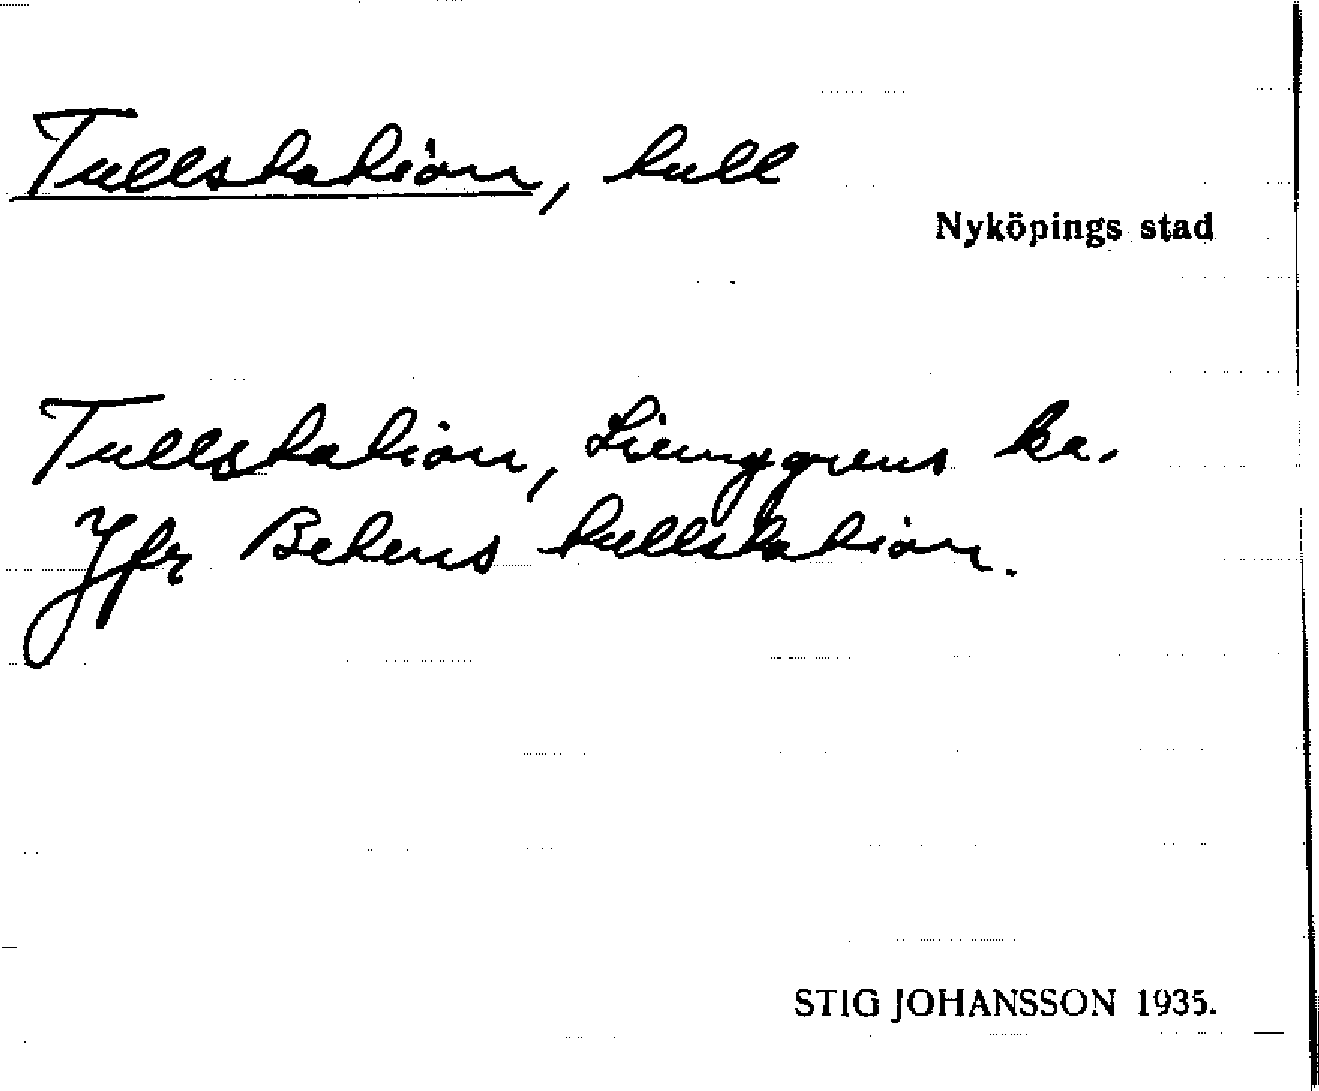 Tullstation, tull
Nyköpings stad
Tullstation, Ljunggrens ka.
Jfr Betens tullstation.
STIG JOHANSSON 1935.